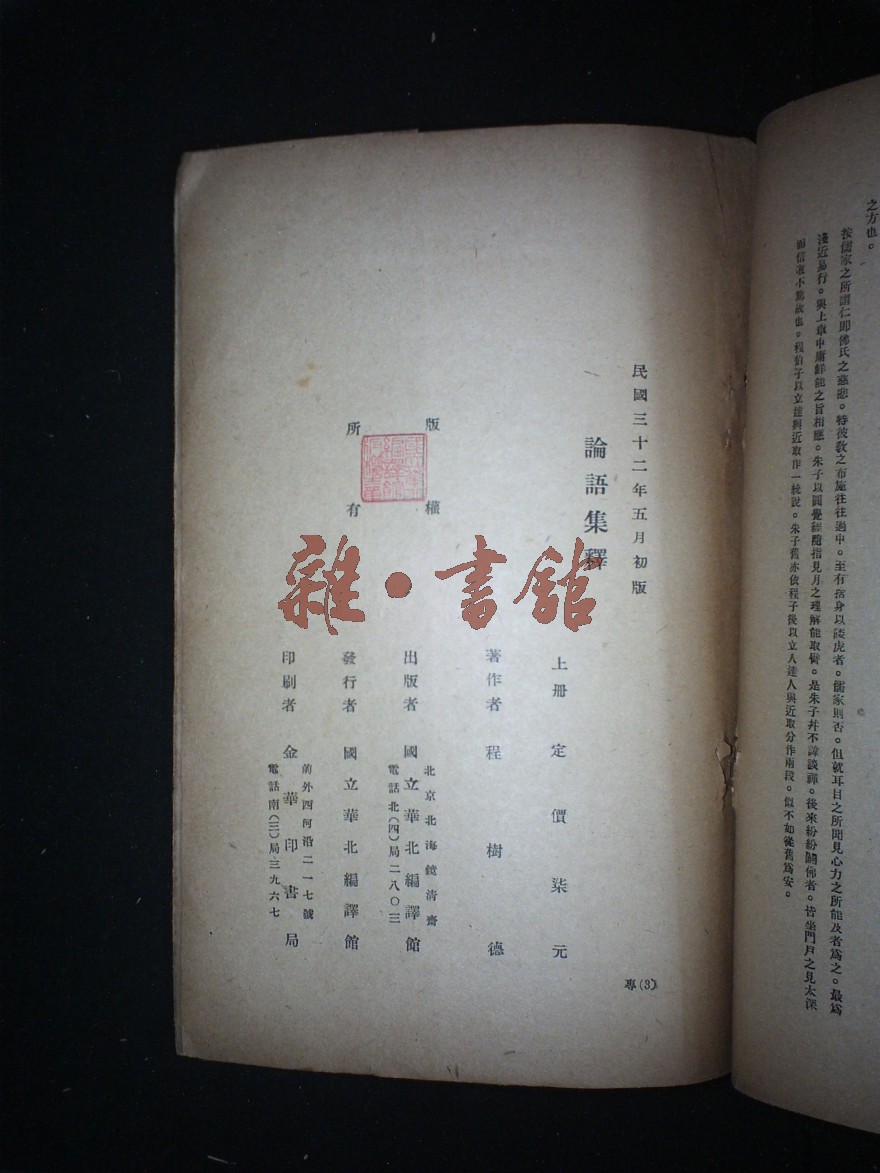 之方也。
按儒家之所謂仁卽佛氏之慈悲。特彼敎之布施往往過中。至有捨身以餧虎者。儒家則否。但就耳目之所聞見心力之所能及者爲之。最爲
淺近易行。與上章中庸鮮能之旨相應。朱子以圓覺經隨指見月之理解能取譬。是朱子幷不諱談禪。後來紛紛闢佛者。皆坐門戶之見太深
而信道不篤故也。程伯子以立達與近取作一統說。朱子舊亦依程子後以立人達人與近取分作兩段。似不如從舊爲安。
民國三十二年五月初版
論語集釋
上册定價柒元
著作者程樹德
出版者國立華北編譯館
北京北海鏡清齋
電話北(四)局二八〇三
發行者國立華北編譯館
印刷者金華印書局
前外西河沿二一七號
電話南(三)局三九六七
版權
所有
專(3)
雜·書館